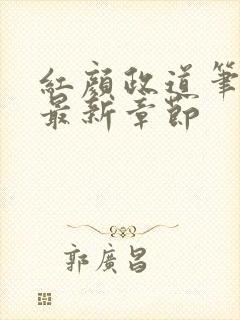 紅顔政道筆
最新章節
郭廣昌